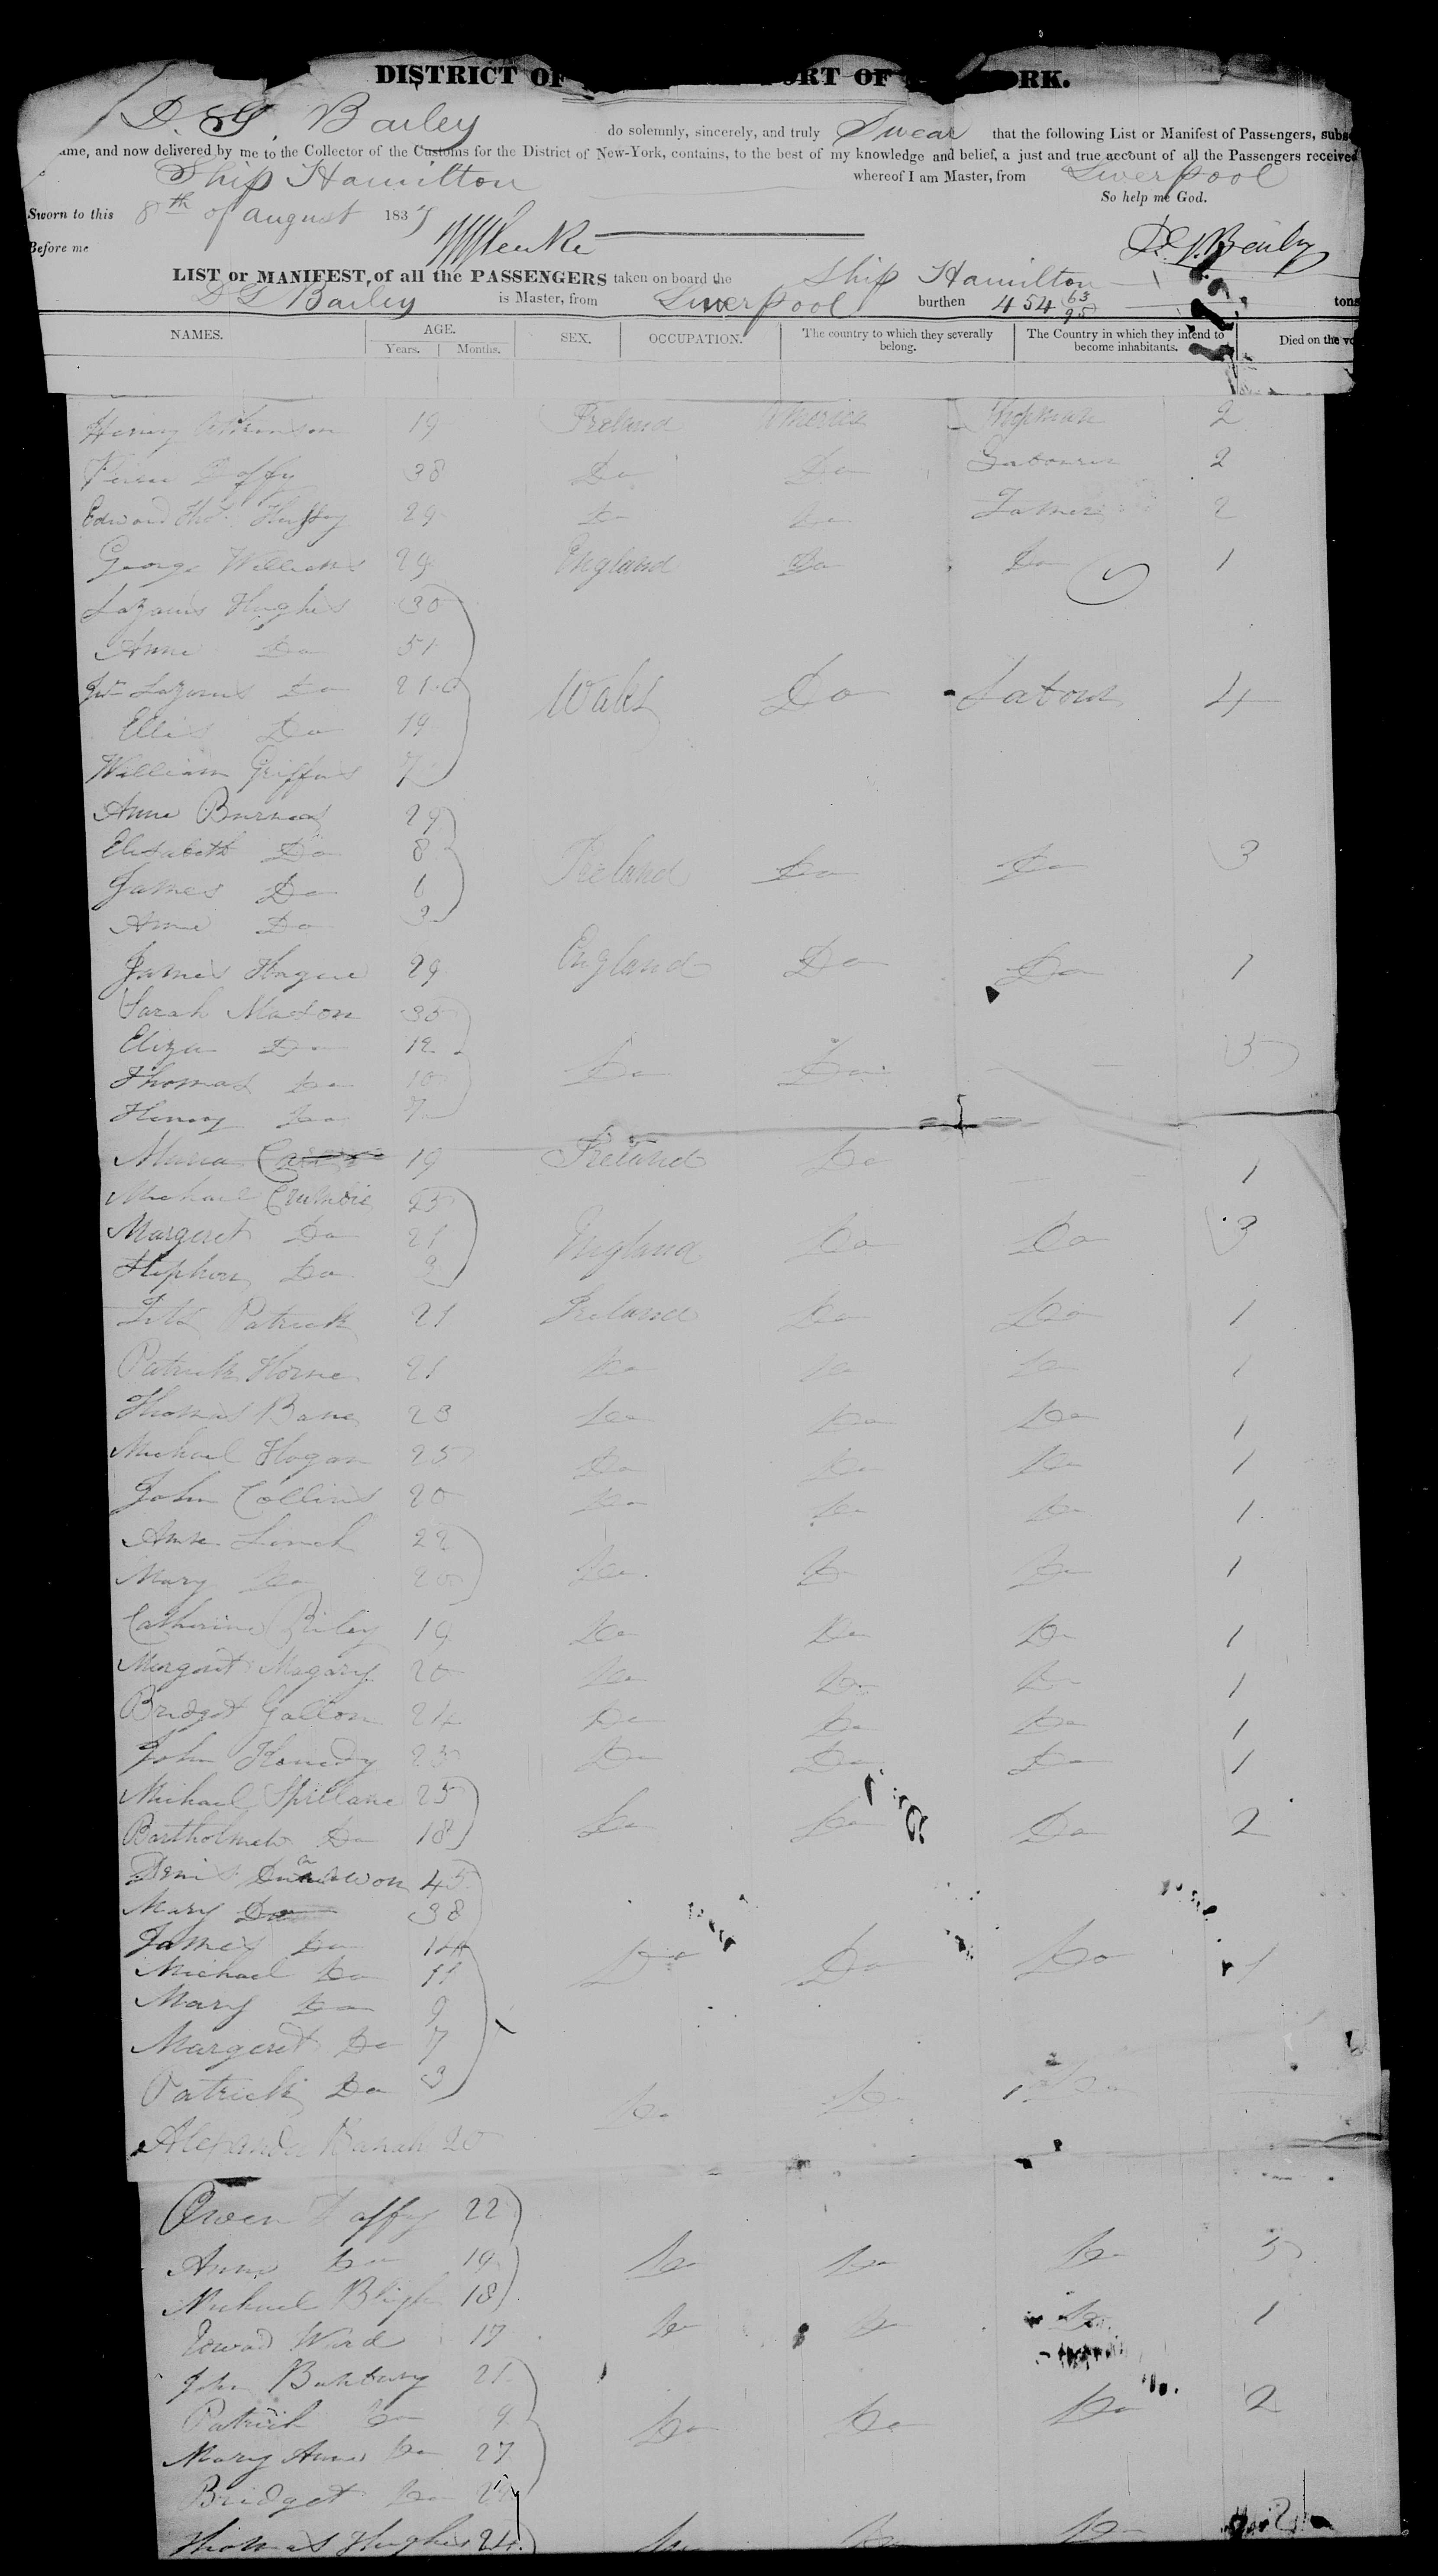 DISTRICT OF ORT OF ORK.
D. G. Bailey do solemnly, sincerely, and truly Swear that the following List or Manifest of Passengers, subs
ame, and now delivered by me to the Collector of the Customs for the District of New-York, contains, to the best of my knowledge and belief, a just and true account of all the Passengers received
Ship Hamilton whereof I am Master, from Liverpool
So help me God.
Sworn to this 8th of august 1837
Before me D. G. Bailey
LIST or MANIFEST, of all the PASSENGERS taken on board the Ship Hamilton
D G Bailey is Master, from Liverpool burthen 454 63/95 tons
NAMES. AGE. SEX. OCCUPATION. The country to which they severally belong. The Country in which they intend to become inhabitants. Died on the vo
Years. Months.
Henry Atkinson 19 Ireland America Shopman 2
Duffy 38 Do Do Labourer 2
Edward Thos. 29 Do Do Farmer 2
George Williams 29 England Do Do 1
Lazarus Hughes 30
Anne Do 51
Jnr Lazarus Do 21
Ellis Do 19 Wales Do Labour 4
William Griffins 7
Anne Burnes 29
Elisabeth Do 8
James Do 6 Ireland Do Do 3
Anne Do 3
James Hague 29 England Do Do 1
Sarah Mason 35
Eliza Do 12
Thomas Do 10 Do Do 3
Henry Do 7
Maria 19 Ireland Do 1
Michael Crumbie 25
Margeret Do 21 England Do Do 3
Stephen Do 3
Fitz Patrick 21 Ireland Do Do 1
Patrick Horne 21 Do Do Do 1
Thomas Bane 23 Do Do Do 1
Michael Hogan 25 Do Do Do 1
John Collins 20 Do Do Do 1
Anne Linch 22
Mary Do 20 Do Do Do 1
Catherine Riley 19 Do Do Do 1
Margaret Magary 20 Do Do Do 1
Bridget Gallon 24 Do Do Do 1
John Kenedy 23 Do Do Do 1
Michael Spillane 25
Bartholmew Do 18 Do Do Do 2
Denis 45
Mary Do 38
James Do 14
Michael Do 11 Do Do Do 1
Mary Do 9
Margeret Do 7
Patrick Do 3
Alexander 20 Do Do Do
Owen Duffy 22
Anne Do 19 Do Do Do 3
Michael Bligh 18
Edward Ward 17 Do Do Do 1
John Bunbury 21
Patrick Do 9 Do Do Do 2
Mary Anne Do 27
Bridget Do
Thomas Hughes 24 Do Do Do